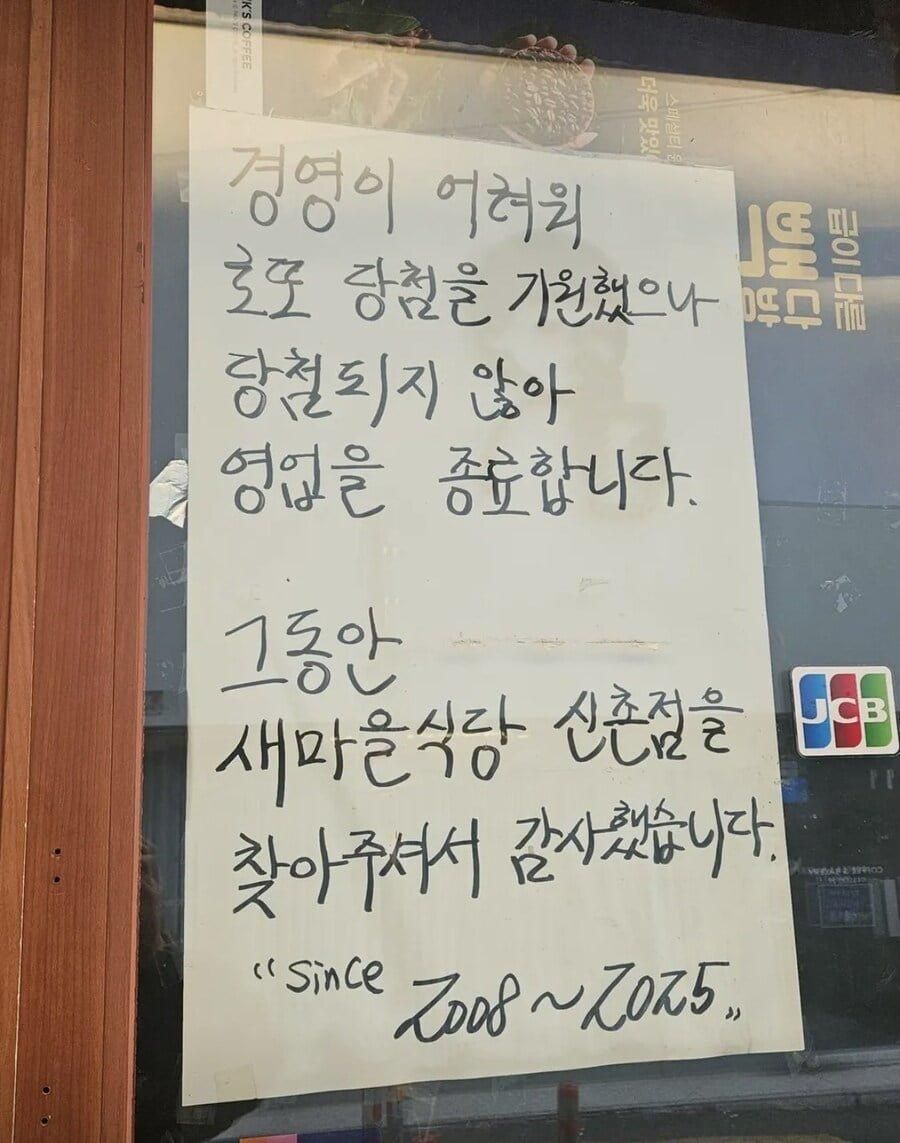 경영이 어려워
로또 당첨을 기원했으나
당첨되지 않아
영업을 종료합니다.
그동안
새마을식당 신촌점을
찾아주셔서 감사했습니다.
"since 2008~2025"
JCB
급이 다른
빽다방
더욱 맛있
스페셜티
K'S COFFEE